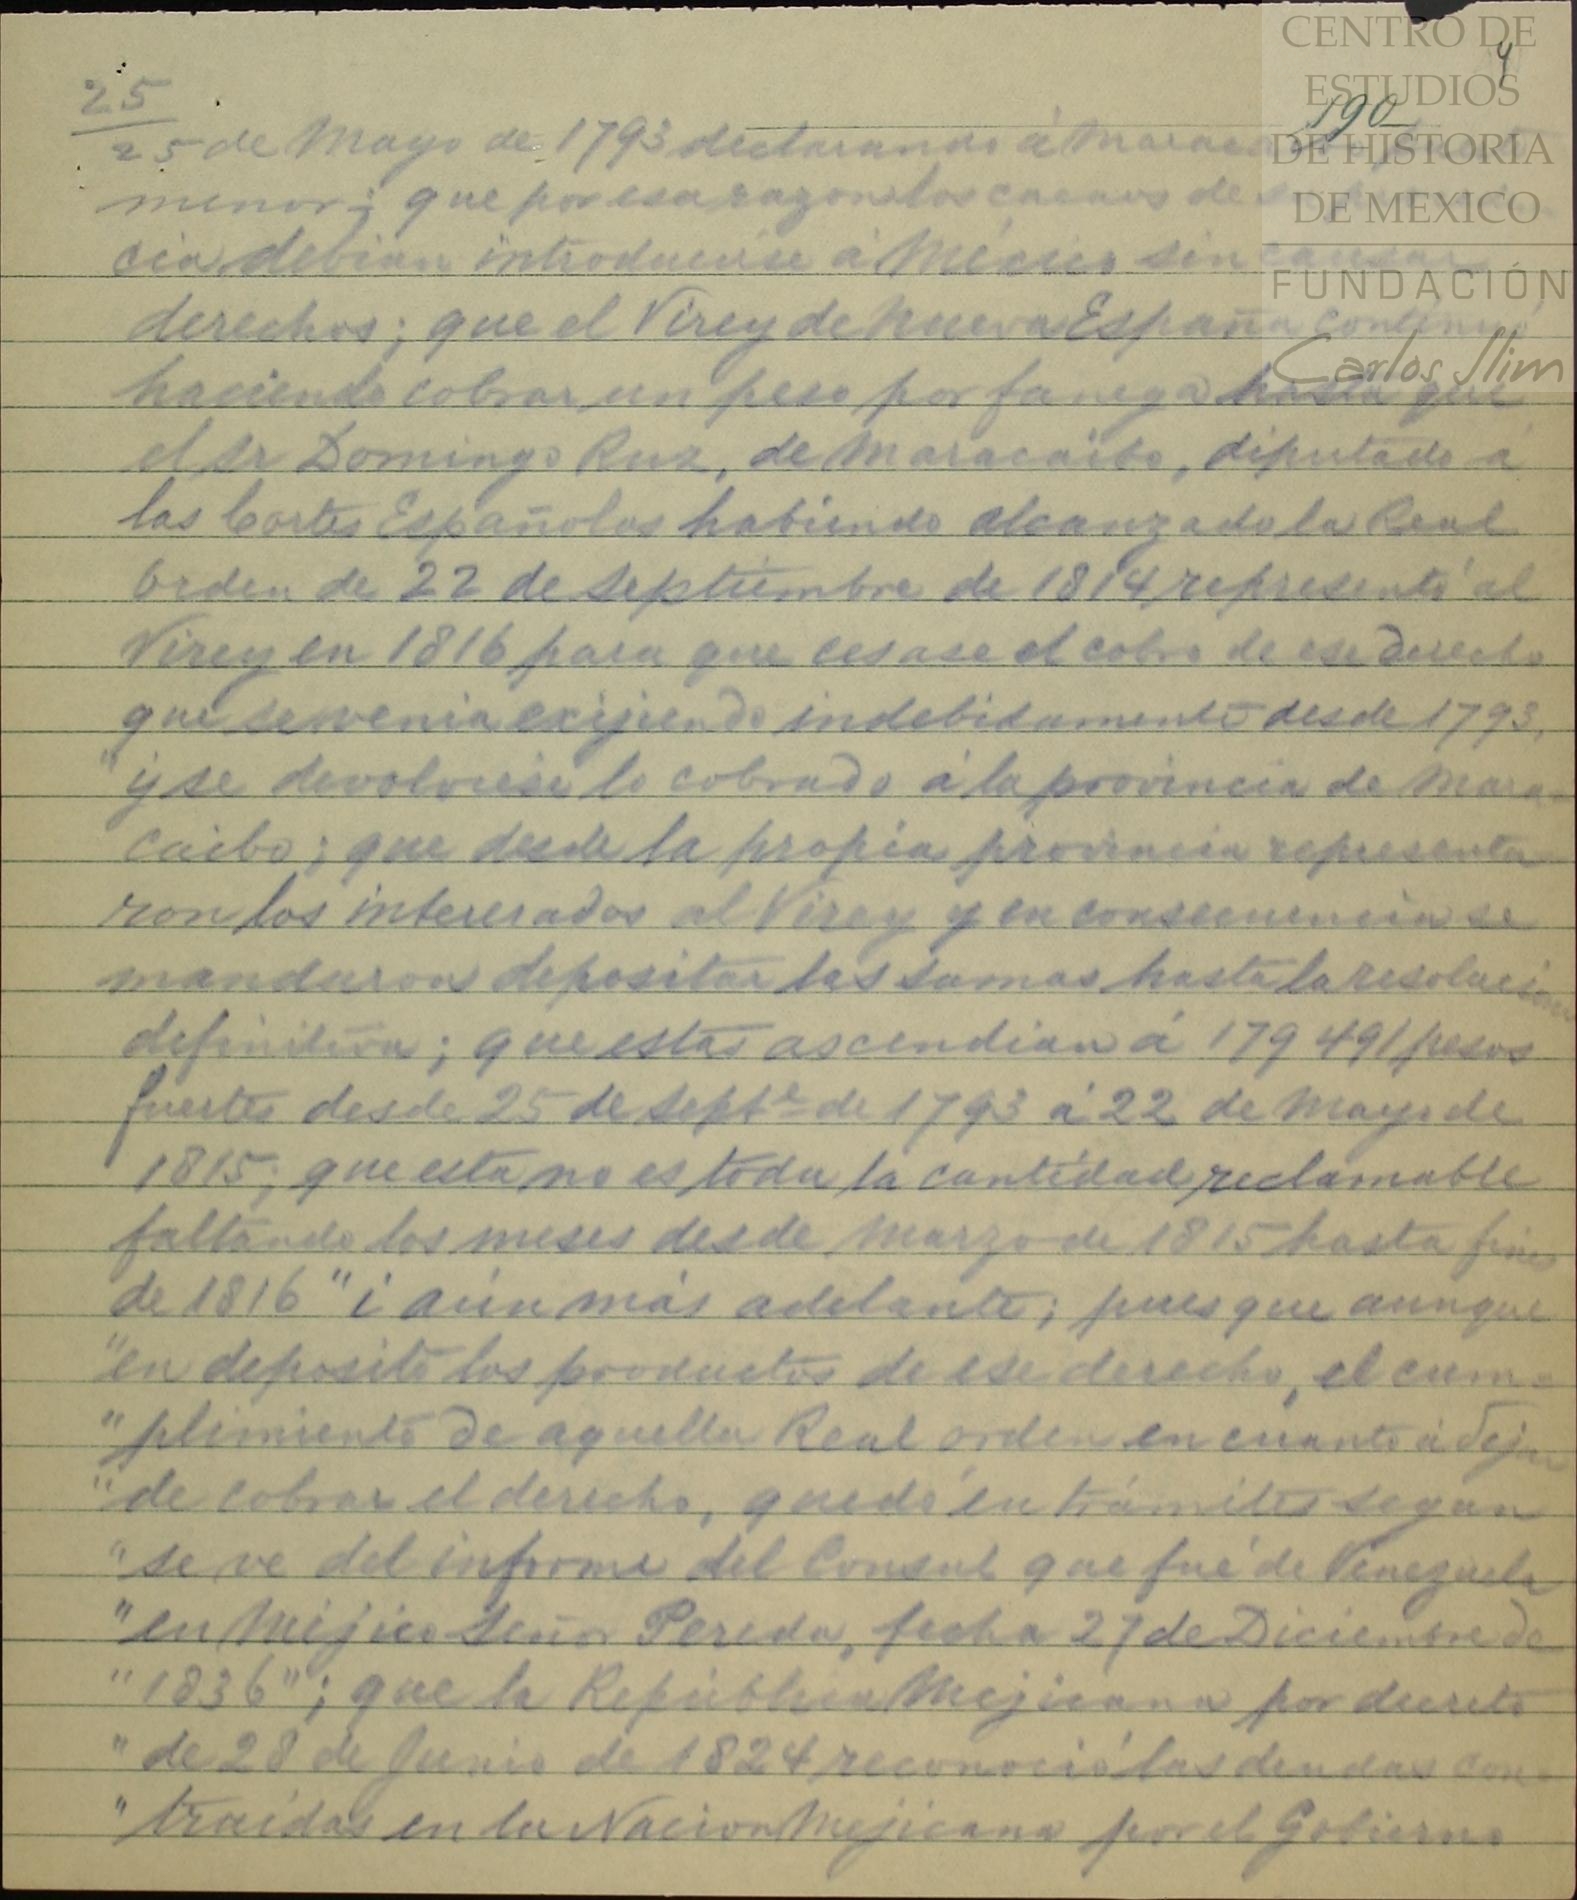 CENTRO DE
ESTUDIOS
DE HISTORIA
DE MEXICO
FUNDACIÓN
Carlos Slim
4
190
25
25 de Mayo de 1793 declarando á
menor; que por esa razon los cacaos de
cia debian introducirse á México sin causar
derechos; que el Virey de Nueva España continuó
haciendo cobrar un peso por fanega hasta que
el Sr Domingo Ruz, de Maracaibo, diputado á
las Cortes Españolas habiendo alcanzado la Real
Orden de 22 de Septiembre de 1814 representó al
Virey en 1816 para que cesase el cobro de ese derecho
que se venia exijiendo indebidamente desde 1793,
"y se devolviese lo cobrado á la provincia de Mara-
caibo; que desde la propia provincia representa
ron los intererados al Virey y en consecuencia se
mandaron depositar las sumas hasta la resolucion
definitiva; que estas ascendian á 179 491 pesos
fuertes desde 25 de Septe de 1793 á 22 de Mayo de
1815; que esta no es toda la cantidad reclamable
faltando los meses desde Marzo de 1815 hasta fines
de 1816 "i aún más adelante; pues que aunque
"en deposito los productos de ese derecho, el cum-
"plimiento de aquella Real orden en cuanto á dejar
"de cobrar el derecho, quedó en trámites segun
"se ve del informe del Consul que fué de Venezuela
"en Mejico Señor Pereda, fecha 27 de Diciembre de
"1836"; que la República Mejicana por decreto
"de 28 de Junio de 1824 reconoció las deudas con-
"traidas en la Nacion Mejicana por el Gobierno